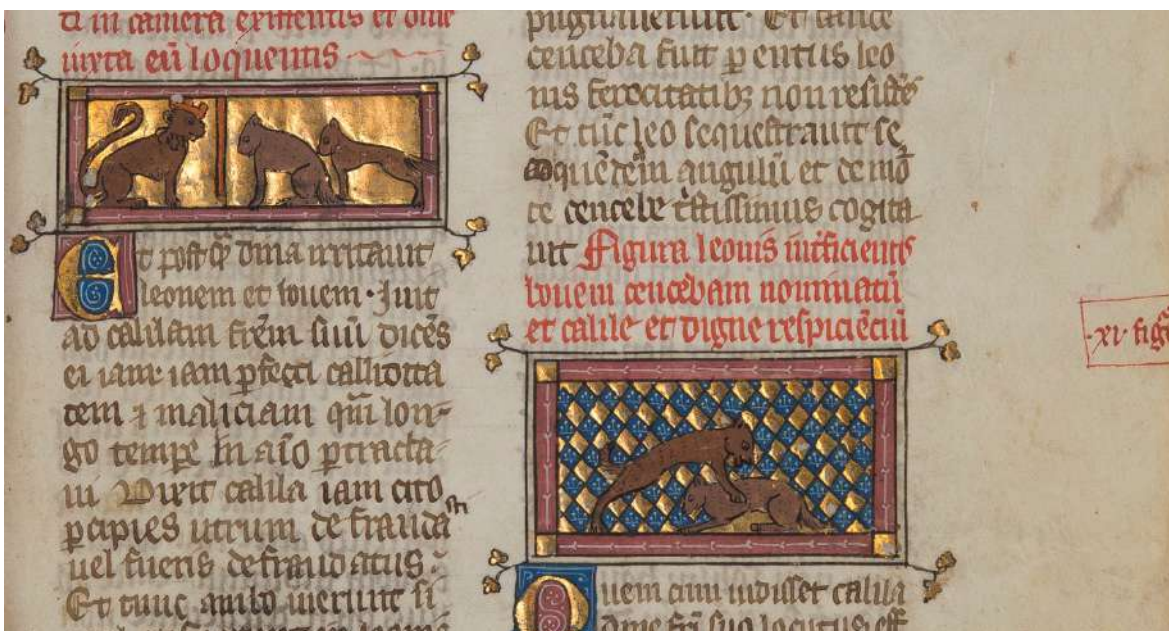 ti in camera existentis et dine
iuxta eū loquentis
Et postq̄ dma irritauit
leonem et bouem · Iuit
ad calilam frēm suū dicēs
ei iam iam pfeci
tem ⁊ maliciam qm̄ lon-
go tempe in aīo ptracta-
ui Dixit calila iam cito
pcipies utrum defrauda
uel fueris defraudatus
Et tunc ambo uerunt si
Et tance
cenceba fuit p entis leo
nis ferocitatibꝫ non
Et tūc leo sequestrauit se
ad quēdem angulū et de mō
te cencebe tristissimus cogita
uit Figura leonis intficientis
bouem cencebam nominatū
et calile et digne respiciēciū
·xv· fig
Quem cum uidisset calila
dine frī suo locutus est